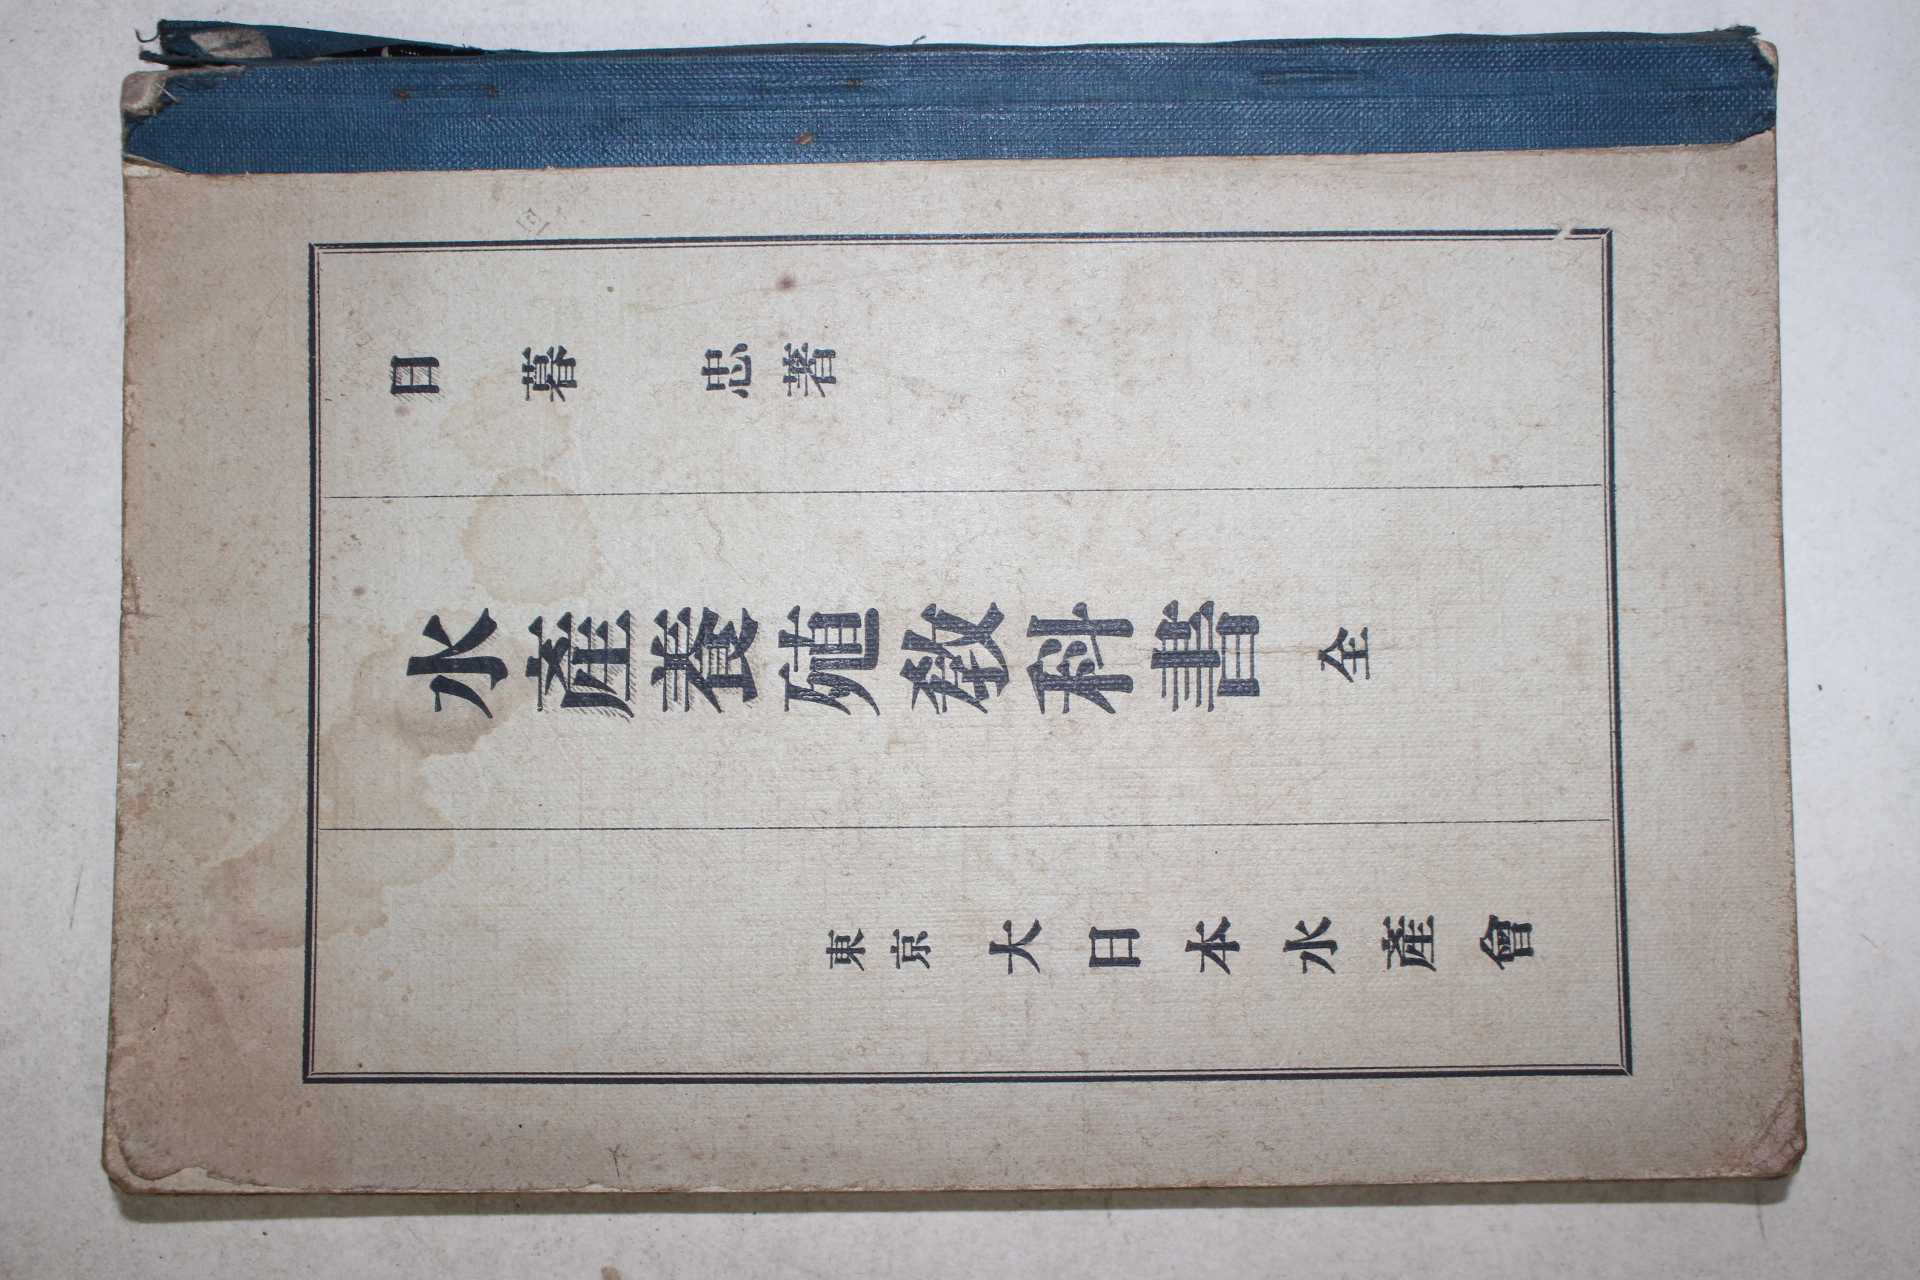 日暮忠著
水産養殖教科書 全
東京 大日本水産會